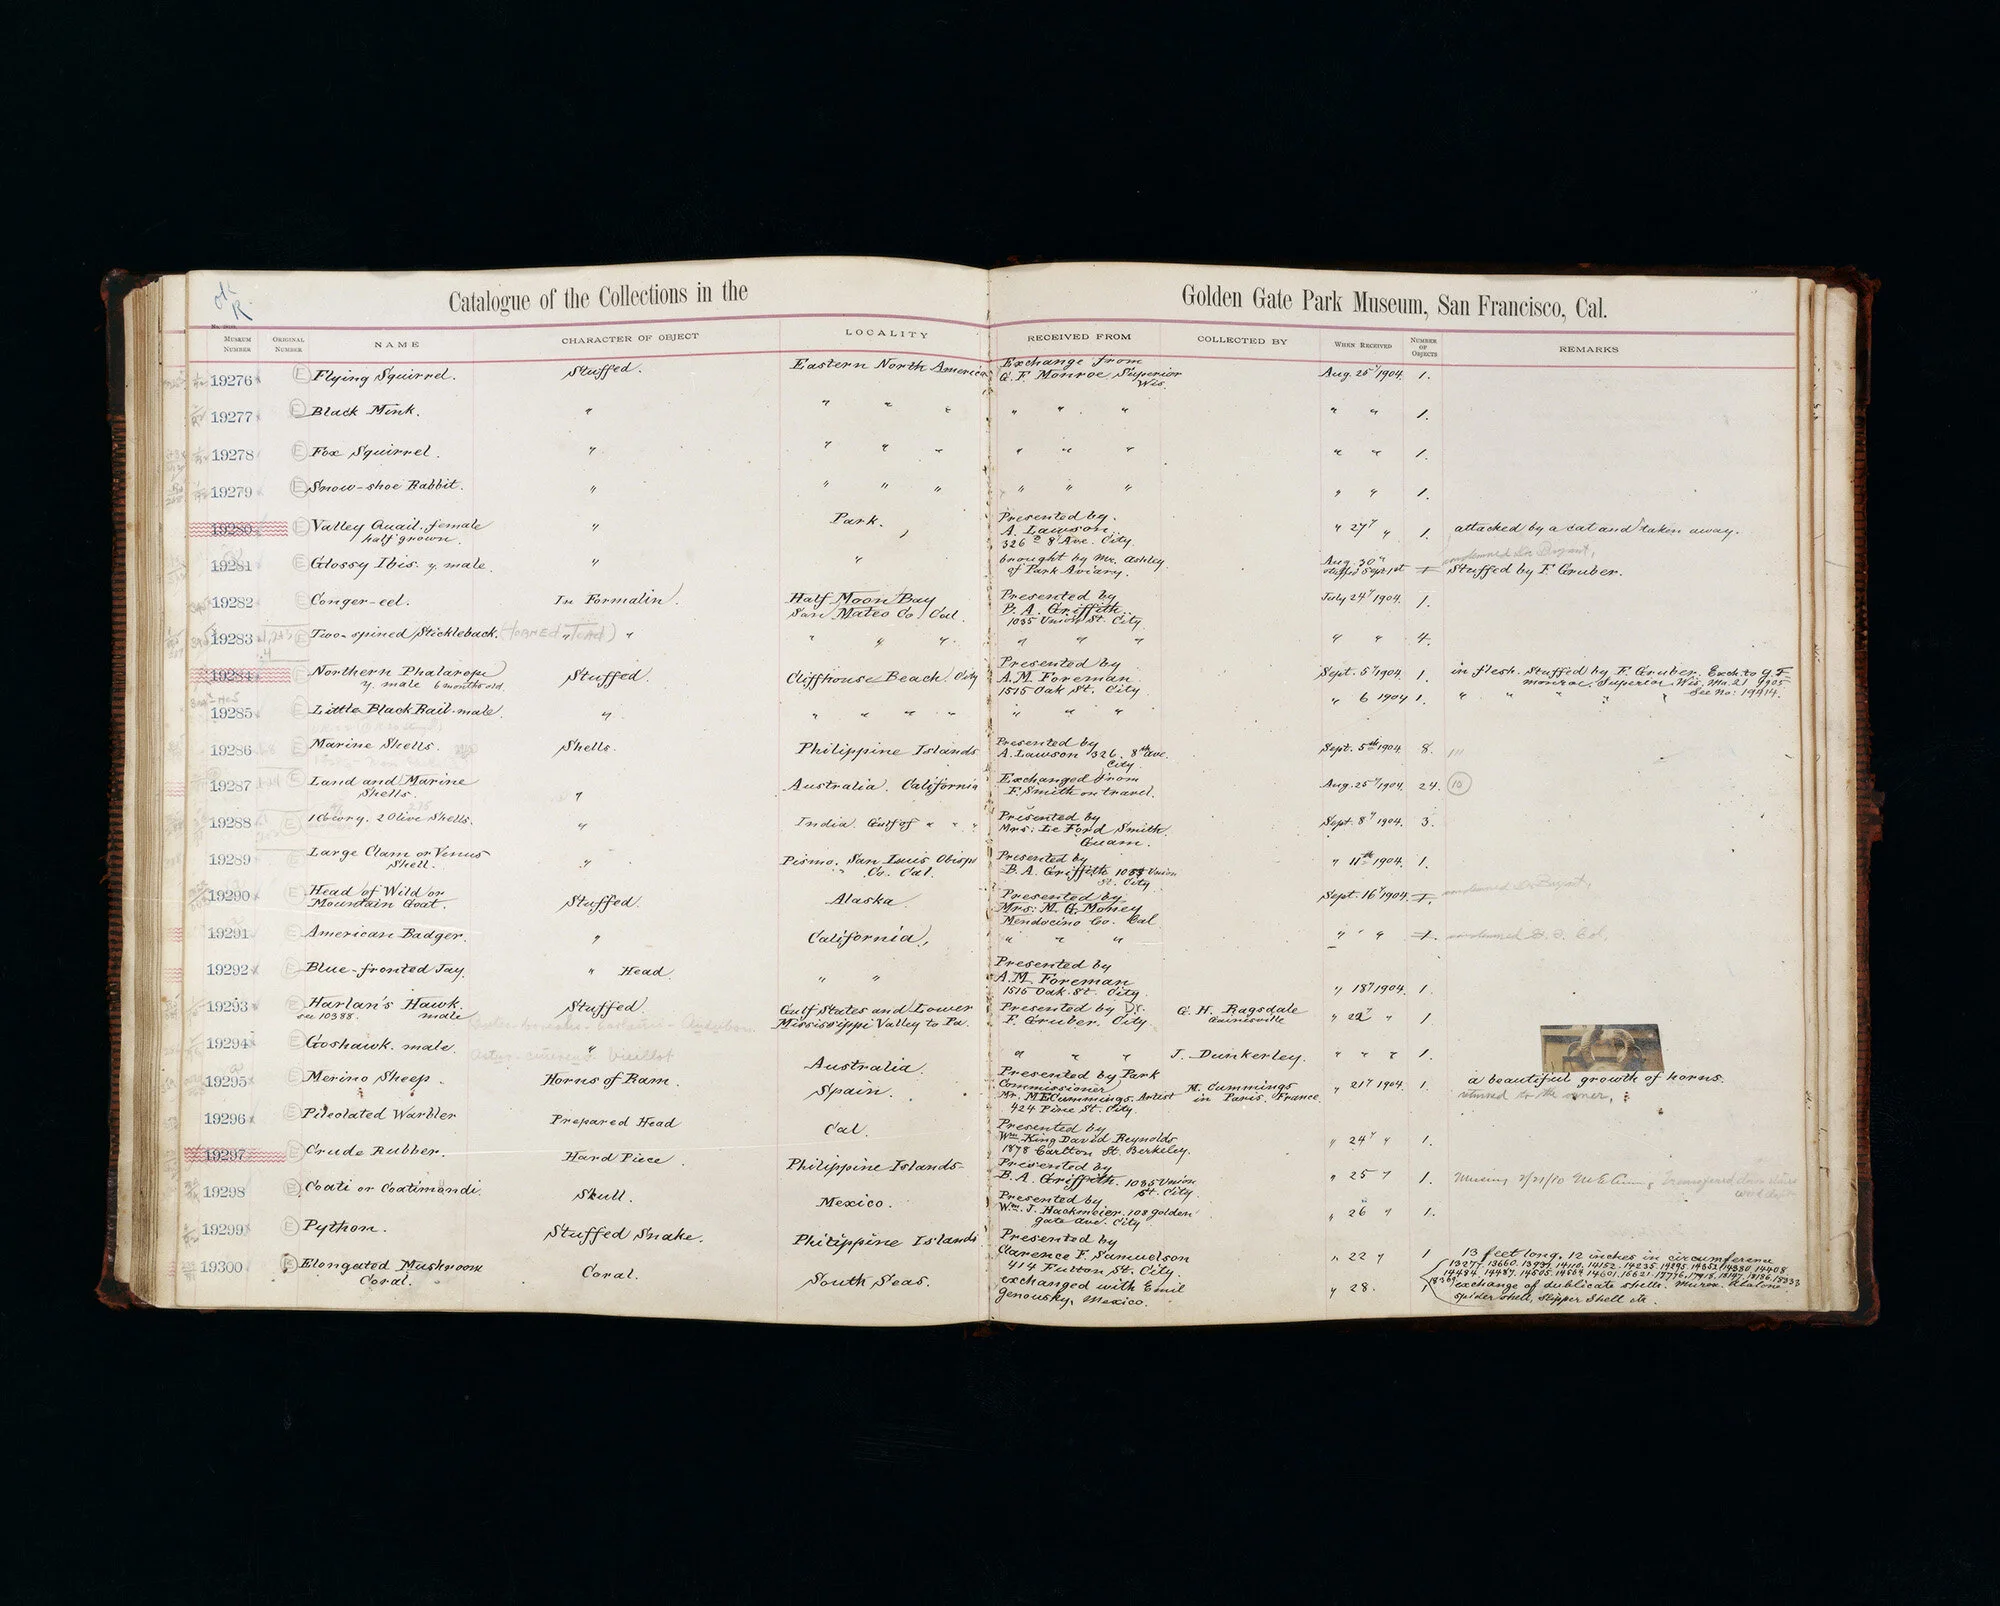 Catalogue of the Collections in the Golden Gate Park Museum, San Francisco, Cal.
MUSEUM NUMBER ORIGINAL NUMBER NAME CHARACTER OF OBJECT LOCALITY RECEIVED FROM COLLECTED BY WHEN RECEIVED NUMBER OF OBJECTS REMARKS
19276 E Flying Squirrel. Stuffed. Eastern North America Exchange from G. F. Monroe Superior Wis. Aug. 25" 1904. 1.
19277 E Black Mink. " " " " " " " " " 1.
19278 E Fox Squirrel. " " " " " " " " " 1.
19279 E Snow-shoe Rabbit. " " " " " " " " " 1.
19280 E Valley Quail. female half grown. " Park. Presented by. A. Lawson 326 8" Ave. City. " 27" " 1. attacked by a cat and taken away.
19281 E Glossy Ibis. y. male. " " brought by Mr. Ashley of Park Aviary. Aug. 30" stuffed Sept 1st 1 condemned Dr Bryant, Stuffed by F. Gruber.
19282 Conger-eel. In Formalin. Half Moon Bay San Mateo Co. Cal. Presented by B. A. Griffith. 1035 Union St. City. July 24" 1904. 1.
19283 E Two-spined Stickleback. (HORNED TOAD) " " " " " " " " " " 4.
19284 E Northern Phalarope y. male 6 months old. Stuffed. Cliffhouse Beach. City Presented by A. M. Foreman. 1515 Oak St. City Sept. 5" 1904. 1. in flesh. Stuffed by F. Gruber. Exch. to G. F. Monroe, Superior Wis. Mr. 21 1905
19285 E Little Black Rail. male. " " " " " " " " " 6 1904 1. " " " " See No: 19414.
19286 E Marine Shells. Shells. Philippine Islands Presented by A. Lawson 326. 8th Ave. City. Sept. 5th 1904 8.
19287 E Land and Marine Shells. " Australia. California Exchanged from F. Smith on travel. Aug. 25" 1904. 24. 10
19288 E 1 Cowry. 2 Olive Shells. " India. Gulf of " " " Presented by Mrs: Le Ford Smith. Guam. Sept. 8" 1904. 3.
19289 Large Clam or Venus Shell. " Pismo. San Luis Obispo Co. Cal. Presented by B. A. Griffith 1035 Union St. City " 11th 1904. 1.
19290 E Head of Wild or Mountain Goat. Stuffed. Alaska Presented by Mrs: M. G. Money Mendocino Co. Cal Sept. 16" 1904. 1. condemned Dr Bryant,
19291 E American Badger. " California, " " " " " " 1. condemned
19292 E Blue-fronted Jay. " Head. " " Presented by A. M. Foreman 1515 Oak. St. City. " 18" 1904. 1.
19293 E Harlan's Hawk. see 10388. male Stuffed. Gulf States and Lower Mississippi Valley to Pa. Presented by Dr. F. Gruber. City. G. H. Ragsdale Gainesville " 22 " 1.
19294 E Goshawk. male. " Australia. " " " J. Dunkerley. " " " 1.
19295 E Merino Sheep. Horns of Ram. Spain. Presented by Park Commissioner Mr. M E Cummings. Artist 424 Pine St. City. M. Cummings in Paris. France. " 21" 1904. 1. a beautiful growth of horns. returned to the owner,
19296 E Pileolated Warbler Prepared Head Cal. Presented by Wm King David Reynolds 1878 Carlton St. Berkeley. " 24" " 1.
19297 E Crude Rubber. Hard Piece. Philippine Islands Presented by B. A. Griffith. 1035 Union St. City " 25 " 1. Missing
19298 E Coati or Coatimondi. Skull. Mexico. Presented by Wm. J. Hackmeier. 108 Golden gate Ave. City. " 26 " 1.
19299 E Python. Stuffed Snake. Philippine Islands Presented by Clarence F. Samuelson 414 Fulton St. City. " 22 " 1 13 feet long. 12 inches in circumference
19300 E Elongated Mushroom Coral. Coral. South Seas. exchanged with Emil Genousky, Mexico. " 28. 1 exchange of dublicate shells. Murex. spider shell, slipper shell etc.